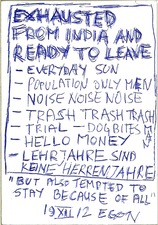 EXHAUSTED
FROM INDIA AND
READY TO LEAVE
- EVERYDAY SUN
- POPULATION ONLY MEN
- NOISE NOISE NOISE
- TRASH TRASH TRASH
- TRIAL - DOGBITES
- HELLO MONEY
- LEHRJAHRE SIND
KEINE HERRENJAHRE
"BUT ALSO TEMPTED TO
STAY BECAUSE OF ALL"
19 XII 12 EGON